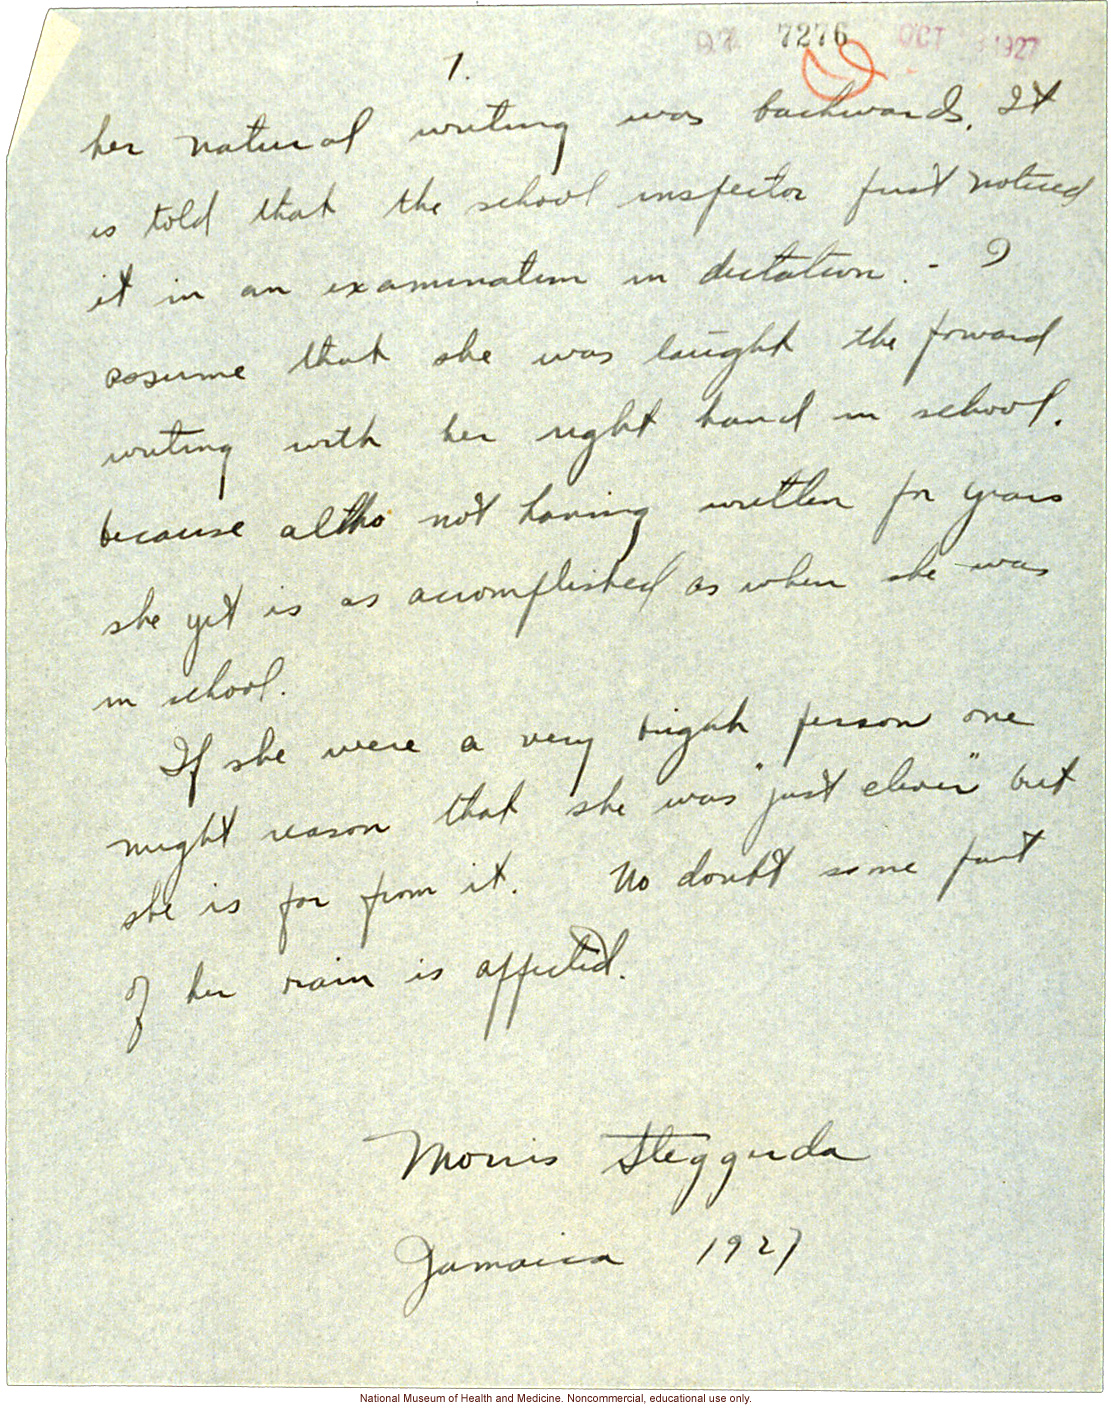 D.7. 7276 OCT 1927
1.
her natural writing was backwards. It
is told that the school inspector first noticed
it in an examination in dictation. - I
assume that she was taught the foward
writing with her right hand in school.
because altho not having written for years
she yet is as accomplished as when she was
in school.
If she were a very bright person one
might reason that she was "just clever" but
she is far from it. No doubt some part
of her brain is affected.
Morris Steggerda
Jamaica 1927
National Museum of Health and Medicine. Noncommercial, educational use only.